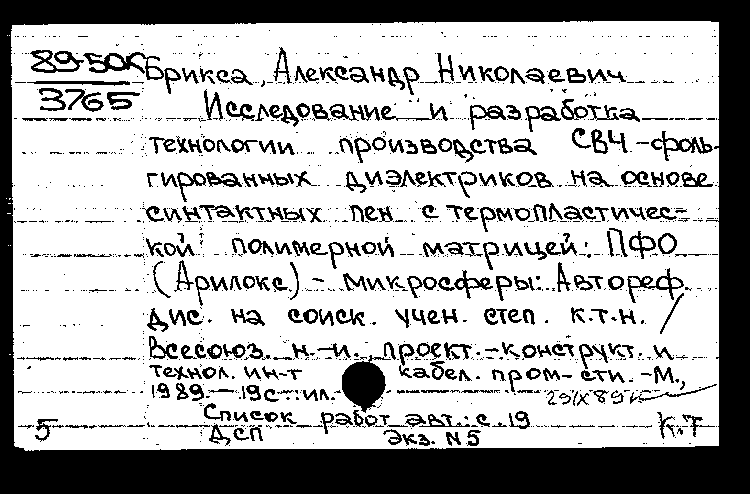 89-50к
3765
Брикса, Александр Николаевич
Исследование и разработка
технологии производства СВЧ-фоль-
гированных диэлектриков на основе
синтактных пен с термопластичес-
кой полимерной матрицей: ПФО
(Арилокс) - микросферы: Автореф.
дис. на соиск. учен. степ. к.т.н. /
Всесоюз. н.-и., проект.-конструкт. и
технол. ин-т кабел. пром-сти. -М.,
1989. - 19с.: ил.
Список работ авт.: с. 19
5 ДСП Экз. N5 К.Т